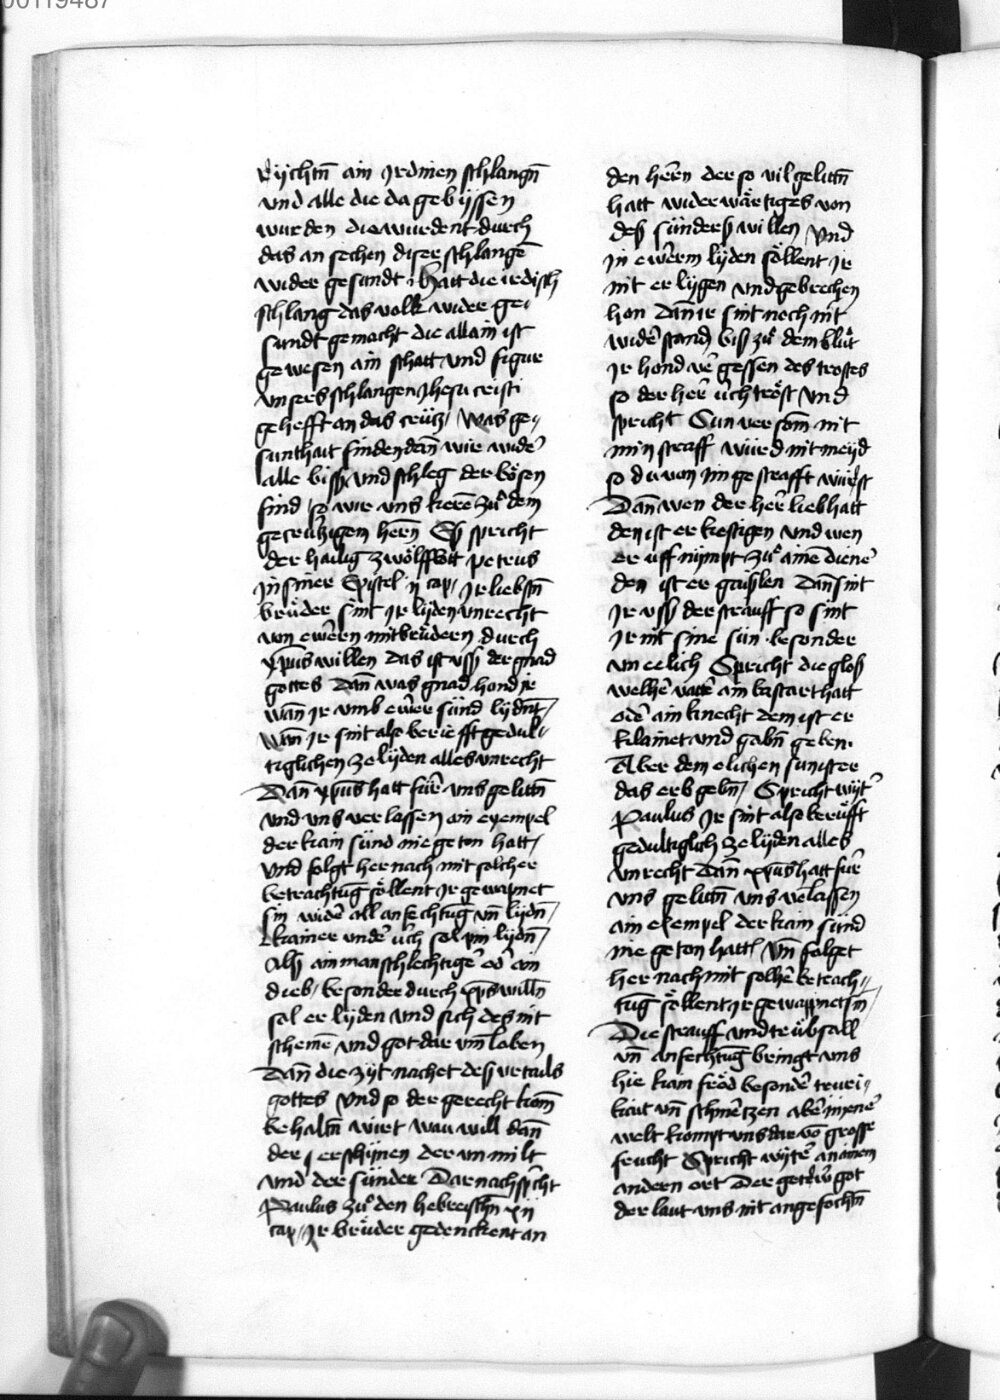 00119487
Rijchtñ ain Irdinen schlangñ
und alle die da gebijssen
wurden die wurdent durch
das an sechen diser schlangē
wider gesundt · Hatt die irdisch
schlang das volk wider ge⸗
sundt gemacht die allain ist
gewesen ain schatt und figur
unsers schlangen Jhesu cristi
gehefft an das crütz / Was ge⸗
sunthait finden dañ wir widē
alle biss und schleg der bösen
find / so wir uns kerē zů dem
gecrützigen herñ Es spricht
der hailig zwölffbott petrus
In siner Epistel ij cap / Ir liebstñ
brüder sint Ir lijden unrecht
von ewern mitbrüdern durch
xp̄us willen das ist uss der gnad
gottes Dañ was gnad hond ir
wañ Ir umb ewer sünd lijdnt /
Wañ Ir sint also berüefft gedul⸗
tiglichen ze lijden alles unrecht
Dañ xp̄us hatt für uns gelittñ
und uns verlassen ain exempel
der kain sünd nie geton hatt /
Und folgt her nach mit solcher
betrachtūg söllent Ir gewapnet
sin widē all anfechtūg uñ lijdñ /
kainer undē üch sol pin lijdñ /
Als ain manschlechtigē od' ain
dieb / besonder durch xp̄s willñ
sol er lijden und sich des nit
schemē und got dar um̄ loben
Dañ die zijt nachet dess urtails
gottes Und so der gerecht kom̄
behaltñ wirt wau will dañ
der erschijnen der unmilt
und der sünder Darnach spricht
Paulus zů den hebreischñ xij
cap / Ir brüder gedenckent an
den herñ der so vil gelittñ
hatt widerwärtiges von
des sünders willen Und
In ewerm lijden söllent ir
nit erligen und gebrechen
hon Dañ ir sint noch nit
widerstand biss zů dem blůt
Ir hond v'gessen des trostes
so der herr üch tröst und
spricht Sun versom nit
min strauff würd nit meijd
so du von im gestrafft würst
Dañ wen der herr lieb hatt
den ist er kestigen und wen
er uff nijmpt zů ainē dienē
den ist er gaislen Dañ sint
Ir uss der strauff so sint
Ir nit sine sün · besonder
un eelich Spricht die glos
welhē vattē ain bastart hatt
odē ain knecht dem ist er
klainet und gabñ geben ·
Aber dem elichen sun ist er
das erb gebñ / Spricht wijtē
Paulus Ir sint also berüfft
gedultiglich ze lijden alles
unrecht Dañ xp̄us hatt für
uns gelittñ uns verlassen
ain exempel der kain sünd
nie geton hatt / Uñ folget
her nach mit solhē betrach⸗
tūg söllent ir gewappnet sin /
Die strauff und trübsall
uñ anfechtūg bringt uns
hie kain fröd besondē truri⸗
kait uñ schmertzen abē in jenē
welt kompt uns dar võ grosse
frucht Spricht wijtē an ainem
andern ort Der getrüw got
der laut uns nit angefochtñ